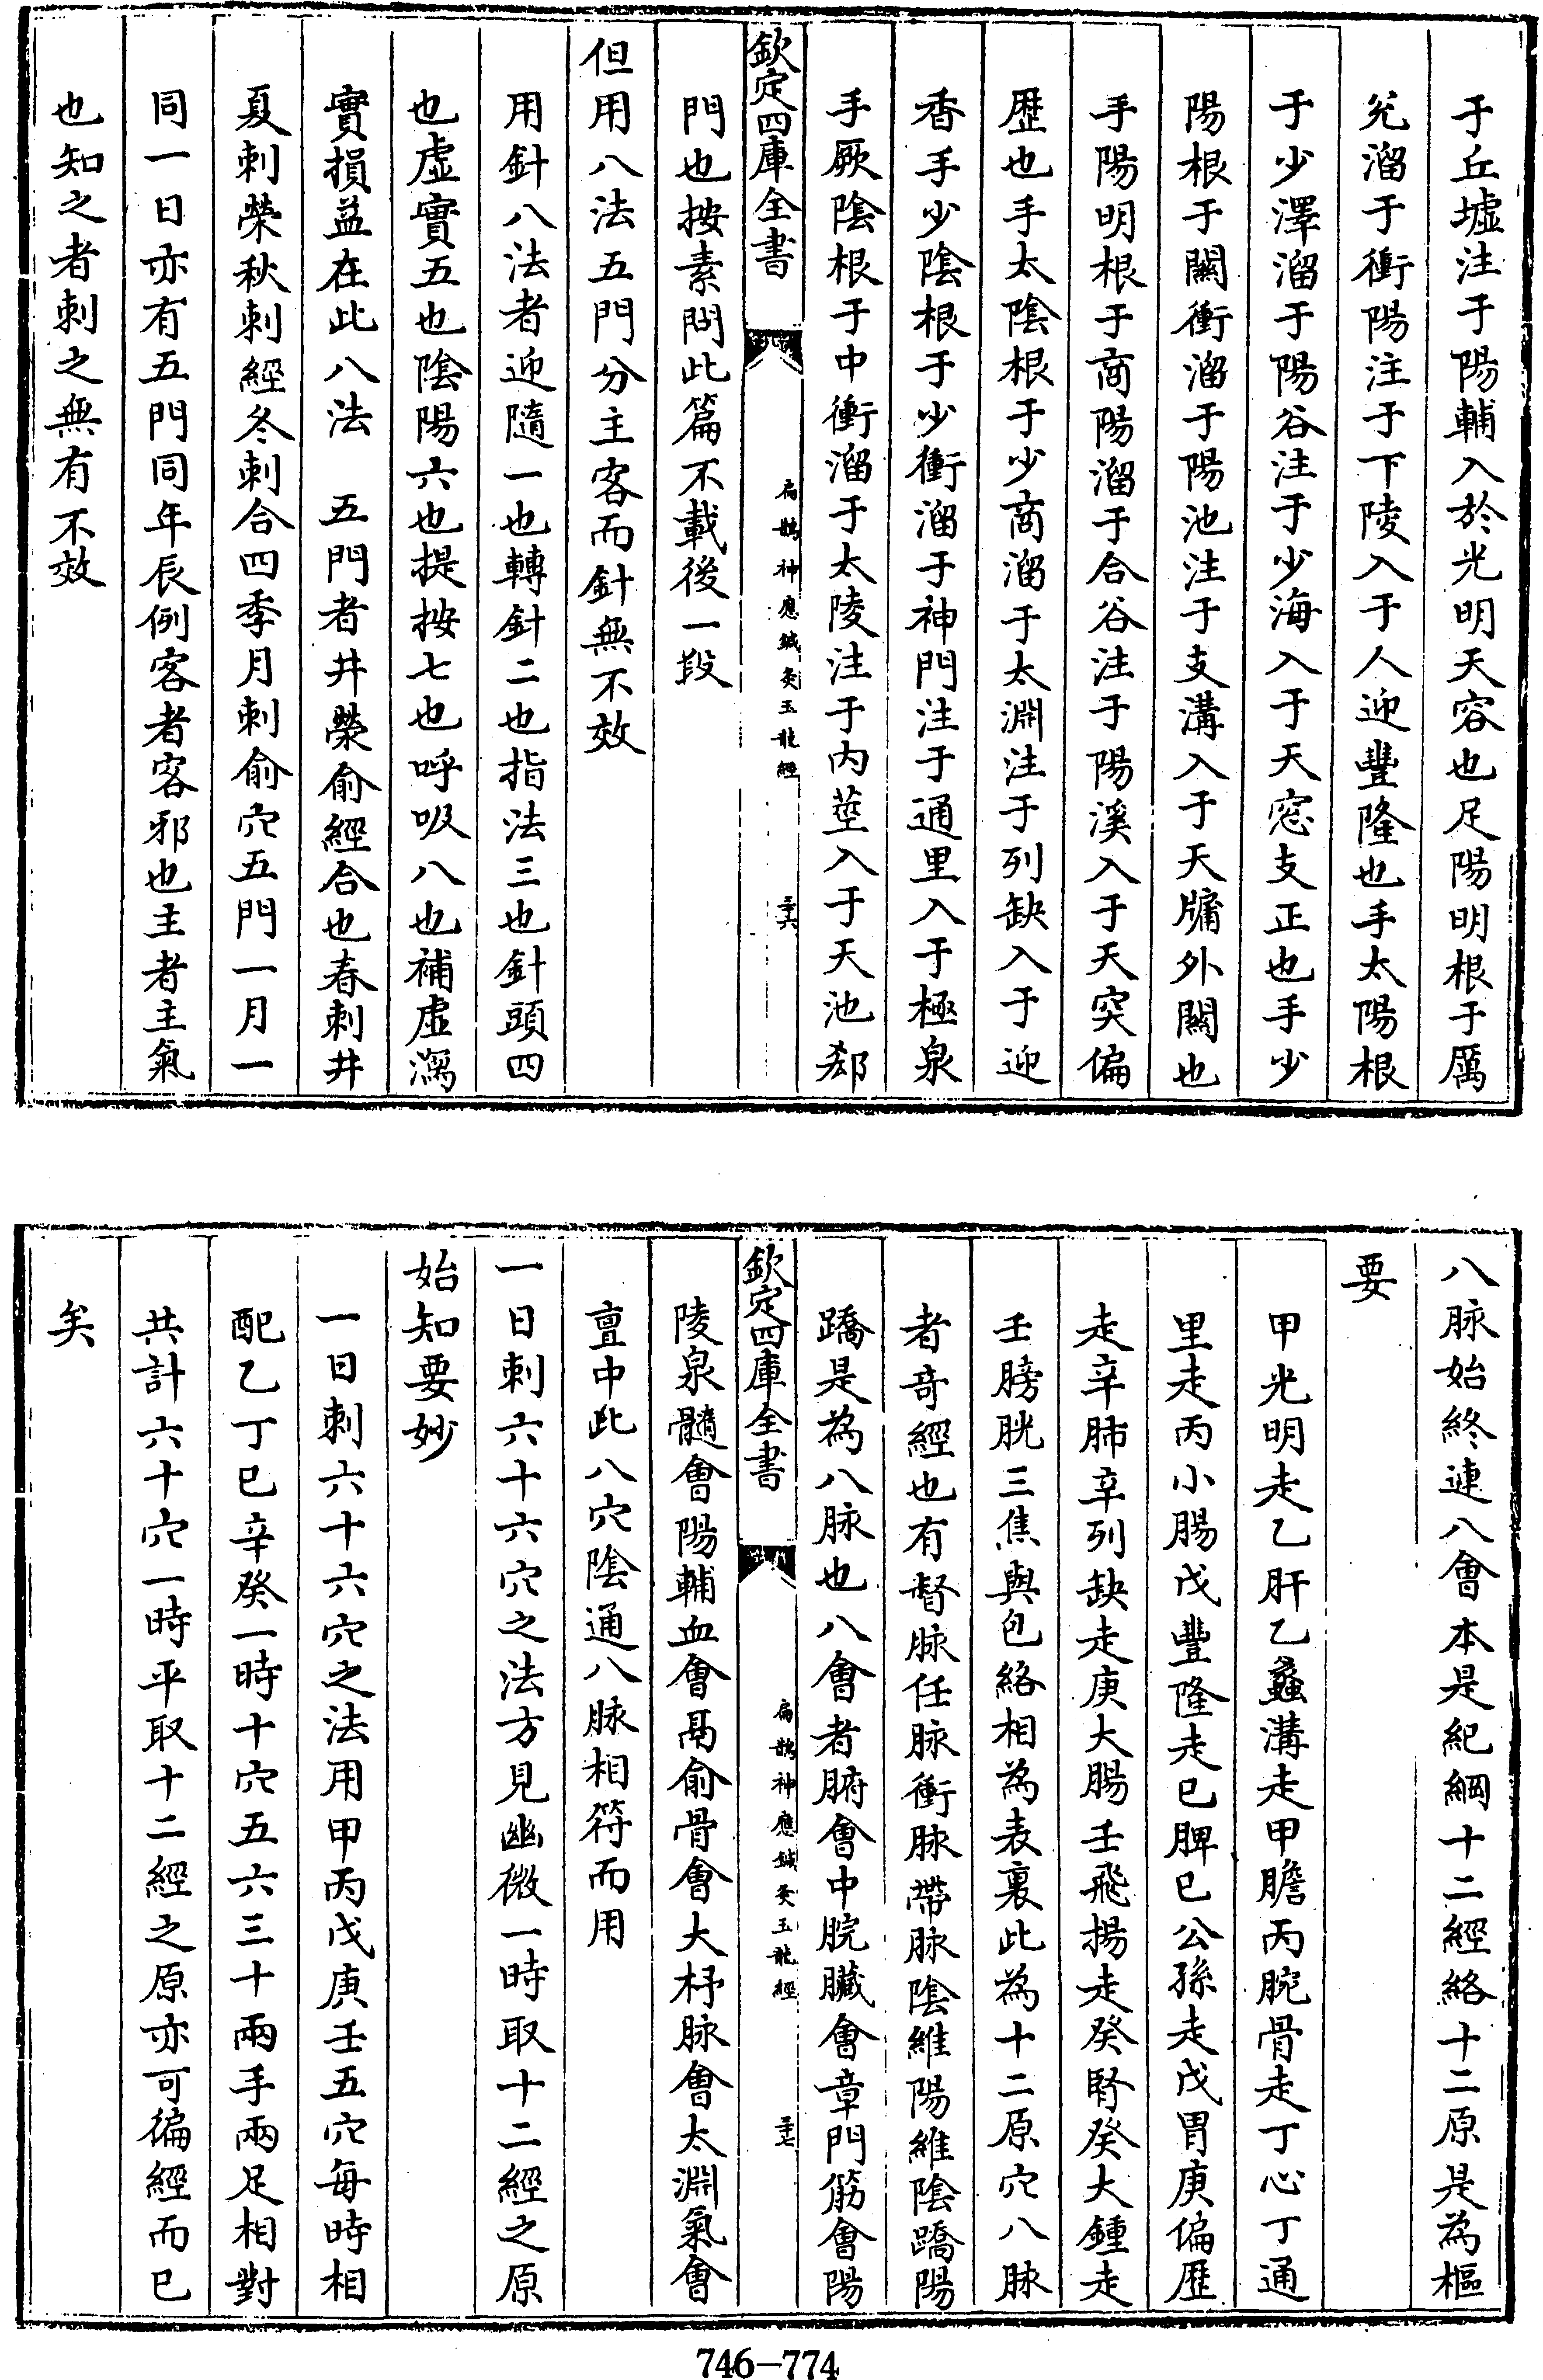 于丘墟注于陽輔入於光明天容也足陽明根于厲
兊溜于衝陽注于下陵入于人迎豐隆也手太陽根
于少澤溜于陽谷注于少海入于天窓支正也手少
陽根于關衝溜于陽池注于支溝入于天牖外關也
手陽明根于商陽溜于合谷注于陽溪入于天突偏
歴也手太陰根于少商溜于太淵注于列缺入于迎
香手少陰根于少衝溜于神門注于通里入于極泉
手厥陰根于中衝溜于太陵注于內莖入于天池郄
欽定四庫全書 扁鵲神應鍼灸玉龍經 三十六
門也按素問此篇不載後一段
但用八法五門分主客而針無不效
用針八法者迎隨一也轉針二也指法三也針頭四
也虛實五也陰陽六也提按七也呼吸八也補虛瀉
實損益在此八法 五門者井榮俞經合也春刺井
夏刺榮秋刺經冬刺合四季月刺俞穴五門一月一
同一日亦有五門同年辰例客者客邪也主者主氣
也知之者刺之無有不效
八脉始終連八會本是紀綱十二經絡十二原是為樞
要
甲光明走乙肝乙蠡溝走甲膽丙腕骨走丁心丁通
里走丙小腸戊豐隆走巳脾巳公孫走戊胃庚偏歴
走辛肺辛列缺走庚大腸壬飛揚走癸腎癸大鍾走
壬膀胱三焦與包絡相為表裏此為十二原穴八脉
者竒經也有督脉任脉衝脉帶脉陰維陽維陰蹻陽
蹻是為八脉也八會者腑會中脘臟會章門筋會陽
欽定四庫全書 扁鵲神應鍼灸玉龍經 三十七
陵泉髓會陽輔血會鬲俞骨會大杼脉會太淵氣會
亶中此八穴陰通八脉相符而用
一日刺六十六穴之法方見幽微一時取十二經之原
始知要妙
一日刺六十六穴之法用甲丙戊庚壬五穴每時相
配乙丁巳辛癸一時十穴五六三十兩手兩足相對
共計六十穴一時平取十二經之原亦可徧經而巳
矣
746-774